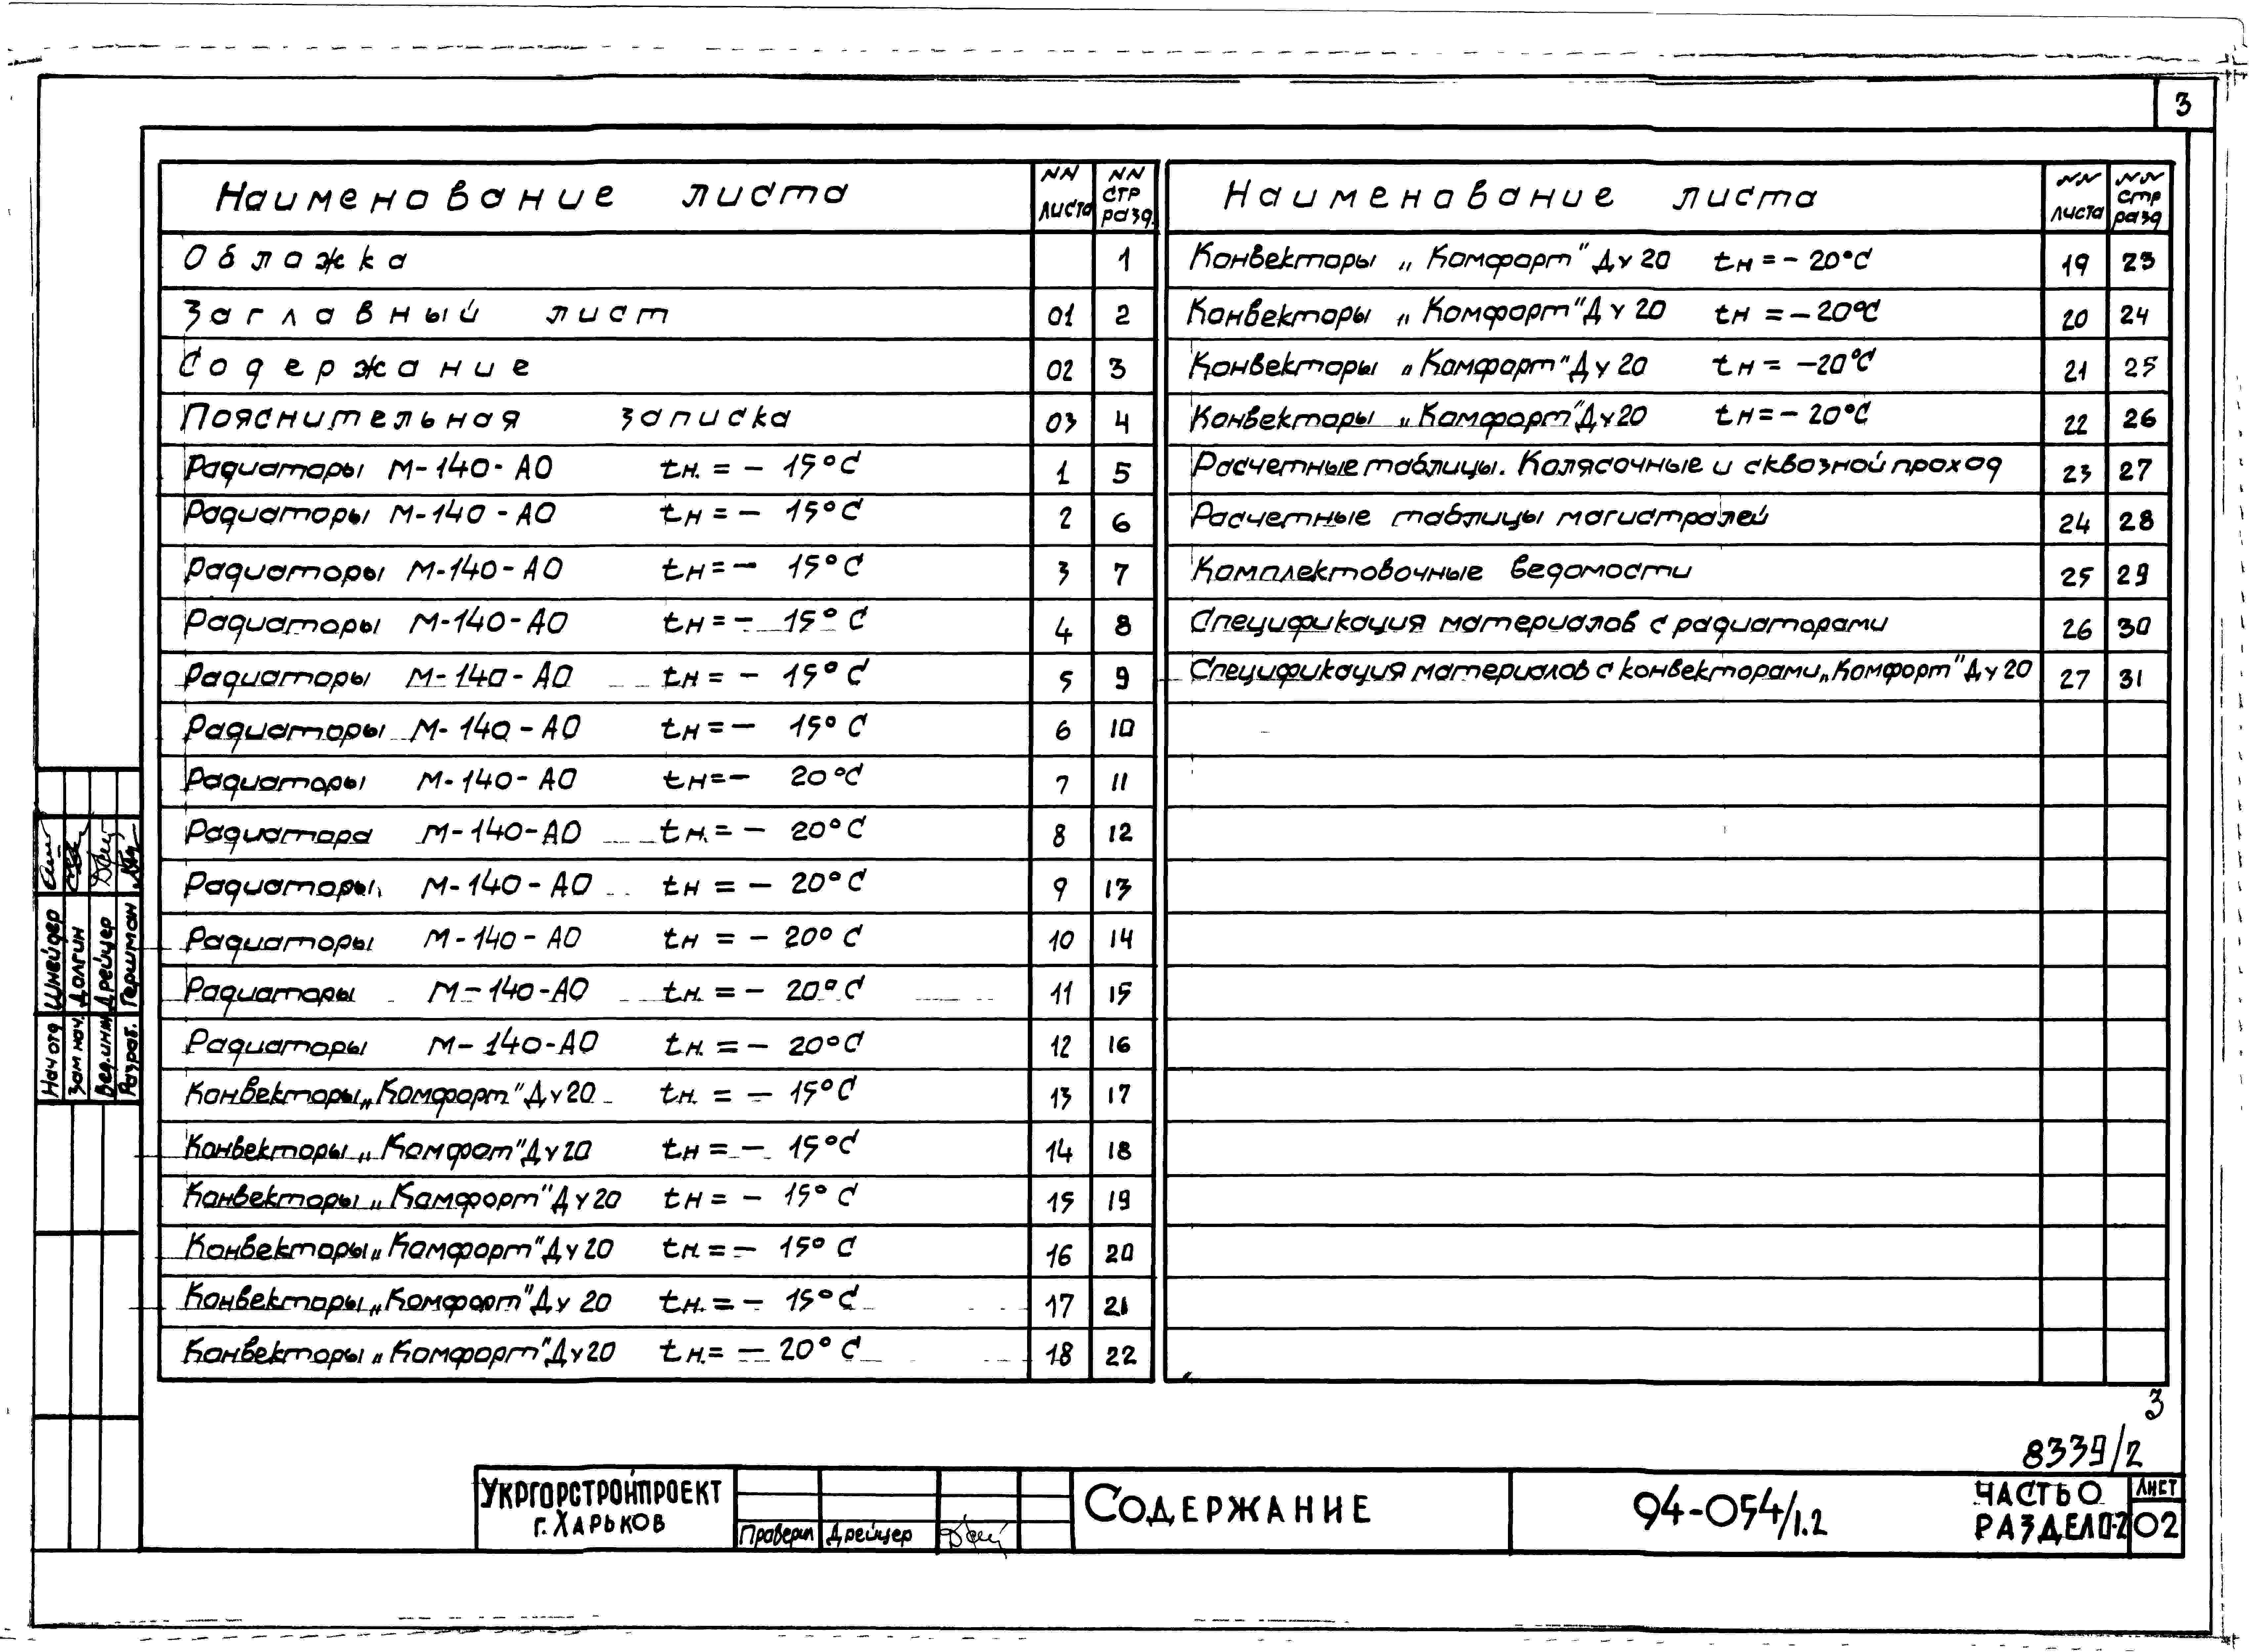 3
Наименование листа NN листа NN стр разд.
Обложка 1
Заглавный лист 01 2
Содержание 02 3
Пояснительная записка 03 4
Радиаторы М-140-АО tн.= - 15°С 1 5
Радиаторы М-140-АО tн = - 15°С 2 6
Радиаторы М-140-АО tн = - 15°С 3 7
Радиаторы М-140-АО tн = - 15°С 4 8
Радиаторы М-140-АО tн = - 15°С 5 9
Радиаторы М-140-АО tн = - 15°С 6 10
Радиаторы М-140-АО tн = - 20°С 7 11
Радиатора М-140-АО tн.= - 20°С 8 12
Радиаторы М-140-АО tн = - 20°С 9 13
Радиаторы М-140-АО tн = - 20°С 10 14
Радиаторы М-140-АО tн.= - 20°С 11 15
Радиаторы М-140-АО tн.= - 20°С 12 16
Конвекторы „Комфорт" Ду 20 tн. = - 15°С 13 17
Конвекторы „Комфот" Ду 20 tн = - 15°С 14 18
Конвекторы „Комфорт" Ду 20 tн = - 15°С 15 19
Конвекторы „Комфорт" Ду 20 tн.= - 15°С 16 20
Конвекторы „Комфорт" Ду 20 tн.= - 15°С 17 21
Конвекторы „Комфорт" Ду 20 tн.= - 20°С 18 22
Наименование листа NN листа NN стр разд
Конвекторы „Комфорт" Ду 20 tн = - 20°С 19 23
Конвекторы „Комфорт" Ду 20 tн = - 20°С 20 24
Конвекторы „Комфорт" Ду 20 tн = - 20°С 21 25
Конвекторы „Комфорт" Ду 20 tн = - 20°С 22 26
Расчетные таблицы. Колясочные и сквозной проход 23 27
Расчетные таблицы магистралей 24 28
Комплектовочные ведомости 25 29
Спецификация материалов с радиаторами 26 30
Спецификация материалов с конвекторами „Комфорт" Ду 20 27 31
Нач отд Шнейдер
Зам нач. Долгин
Вед.инж Дрейцер
Разраб. Гершман
3
8339/2
Укргорстройпроект
г. Харьков
Проверил Дрейцер
Содержание
94-054/1.2
Часть 0
Раздел 0-2
Лист
02